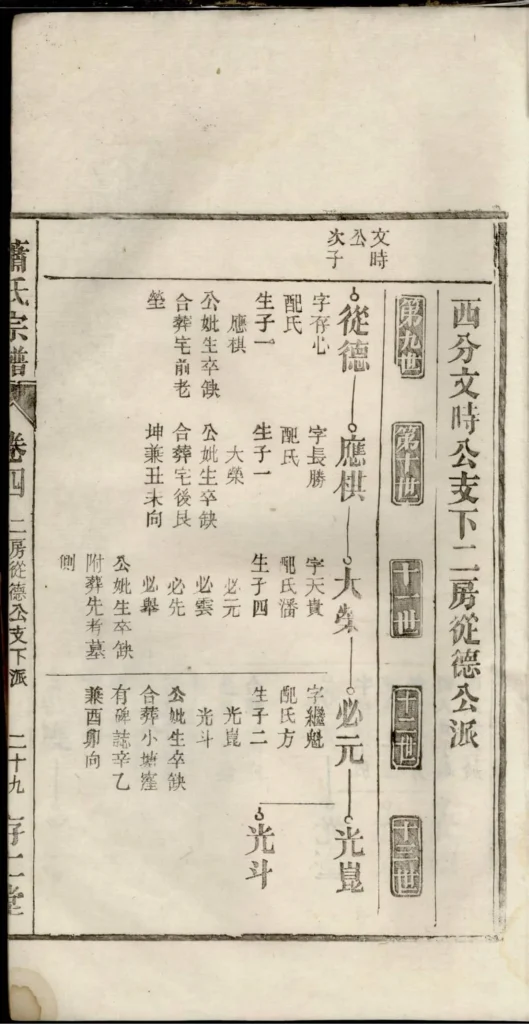 西分文時公支下二房從德公派
第九世
第十世
十一世
十二世
十三世
文時
公
次子
從德
字存心
配氏
生子一
應棋
公妣生卒缺
合葬宅前老
塋
應棋
字長勝
配氏
生子一
大榮
公妣生卒缺
合葬宅後艮
坤兼丑未向
大榮
字天貴
配氏潘
生子四
必元
必雲
必先
必舉
公妣生卒缺
附葬先考墓
側
必元
字繼魁
配氏方
生子二
光崑
光斗
公妣生卒缺
合葬小塘窪
有碑誌辛乙
兼酉卯向
光崑
光斗
蕭氏宗譜
卷四
二房從德公支下派
二十九
存仁堂